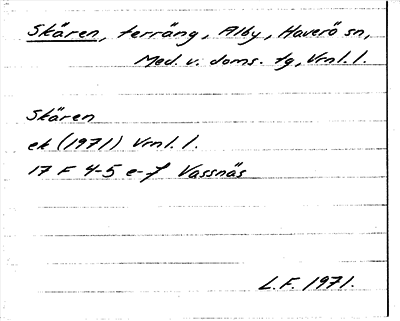 Skären, terräng, Alby, Haverö sn,
Med. v. doms. tg, Vrnl. l.
Skären
ek (1971) Vrnl. l.
17 F 4-5 e-f Vassnäs
L.F. 1971.